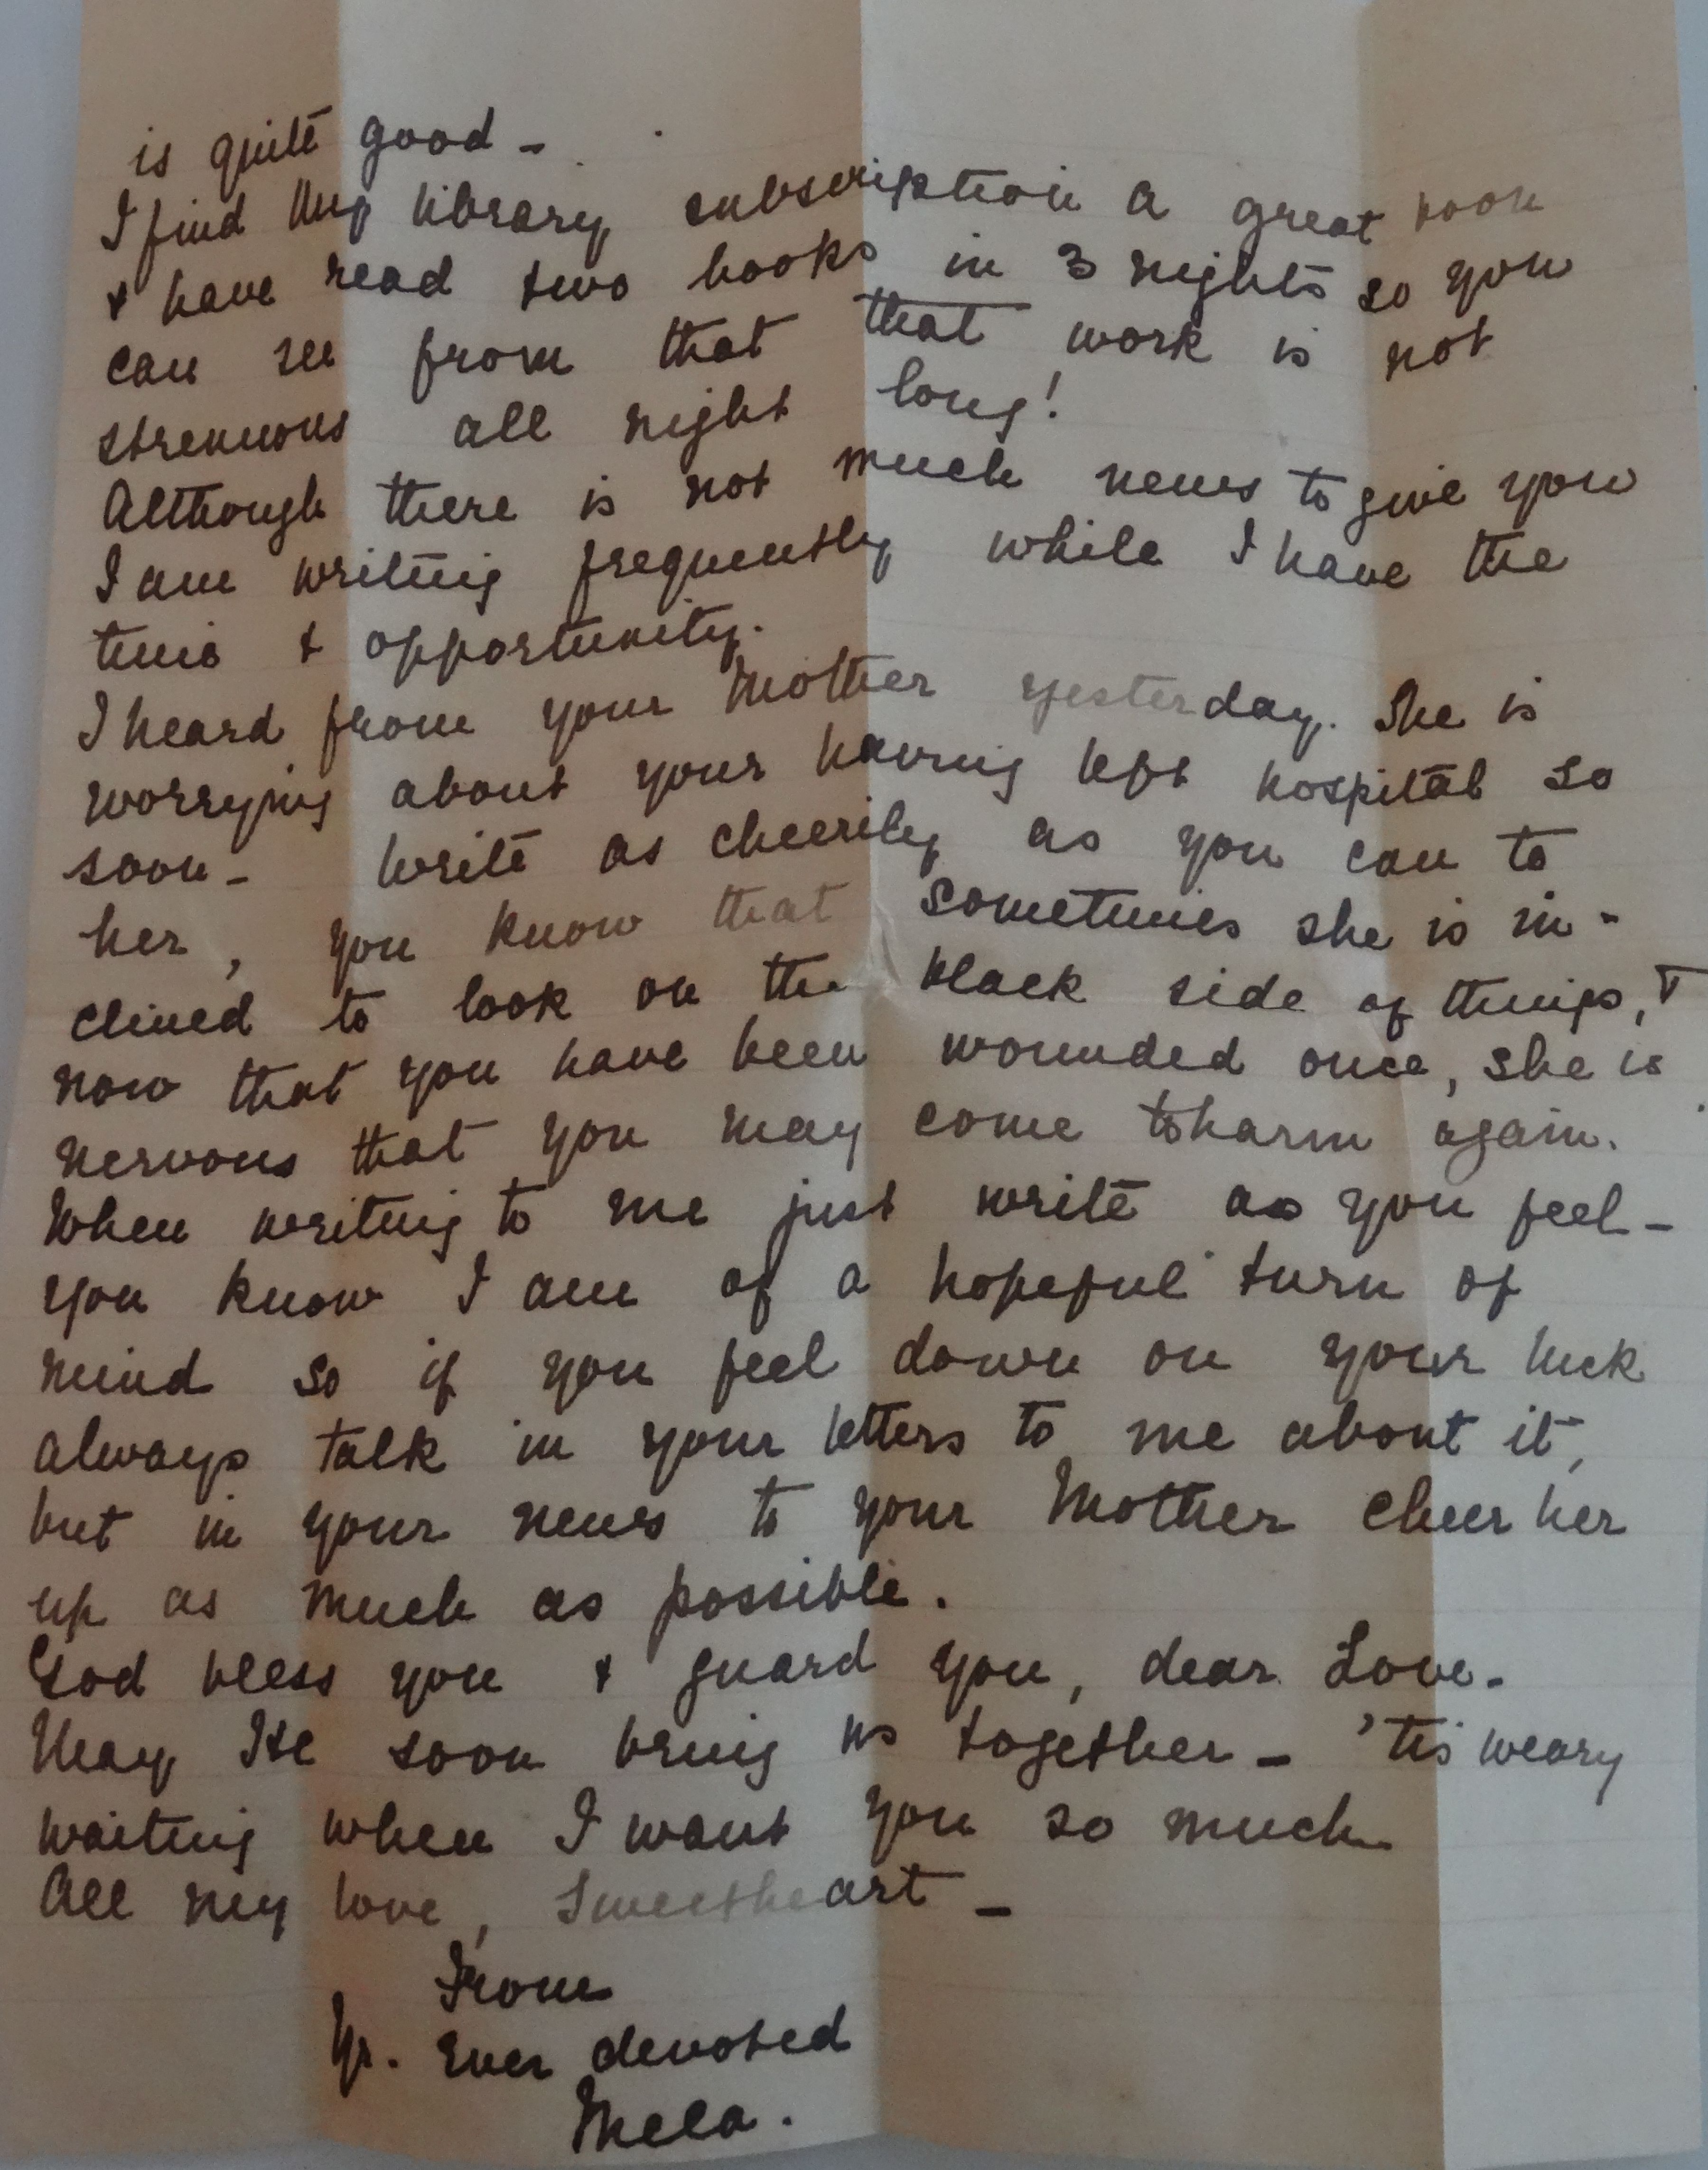 is quite good -
I find my library subscription a great boon
& have read two books in 3 nights so you
can see from that that work is not
strenuous all night long!
Although there is not much news to give you
I am writing frequently while I have the
time & opportunity.
I heard from your Mother yesterday. She is
worrying about your having left hospital so
soon - Write as cheerily as you can to
her, you know that sometimes she is in-
clined to look on the black side of things, &
now that you have been wounded once, she is
nervous that you may come to harm again.
When writing to me just write as you feel -
you know I am of a hopeful turn of
mind so if you feel down on your luck
always talk in your letters to me about it,
but in your news to your Mother cheer her
up as much as possible.
God bless you & guard you, dear Love.
May He soon bring us together - 'tis weary
waiting when I want you so much
All my love, Sweetheart -
From
Yr. Ever devoted